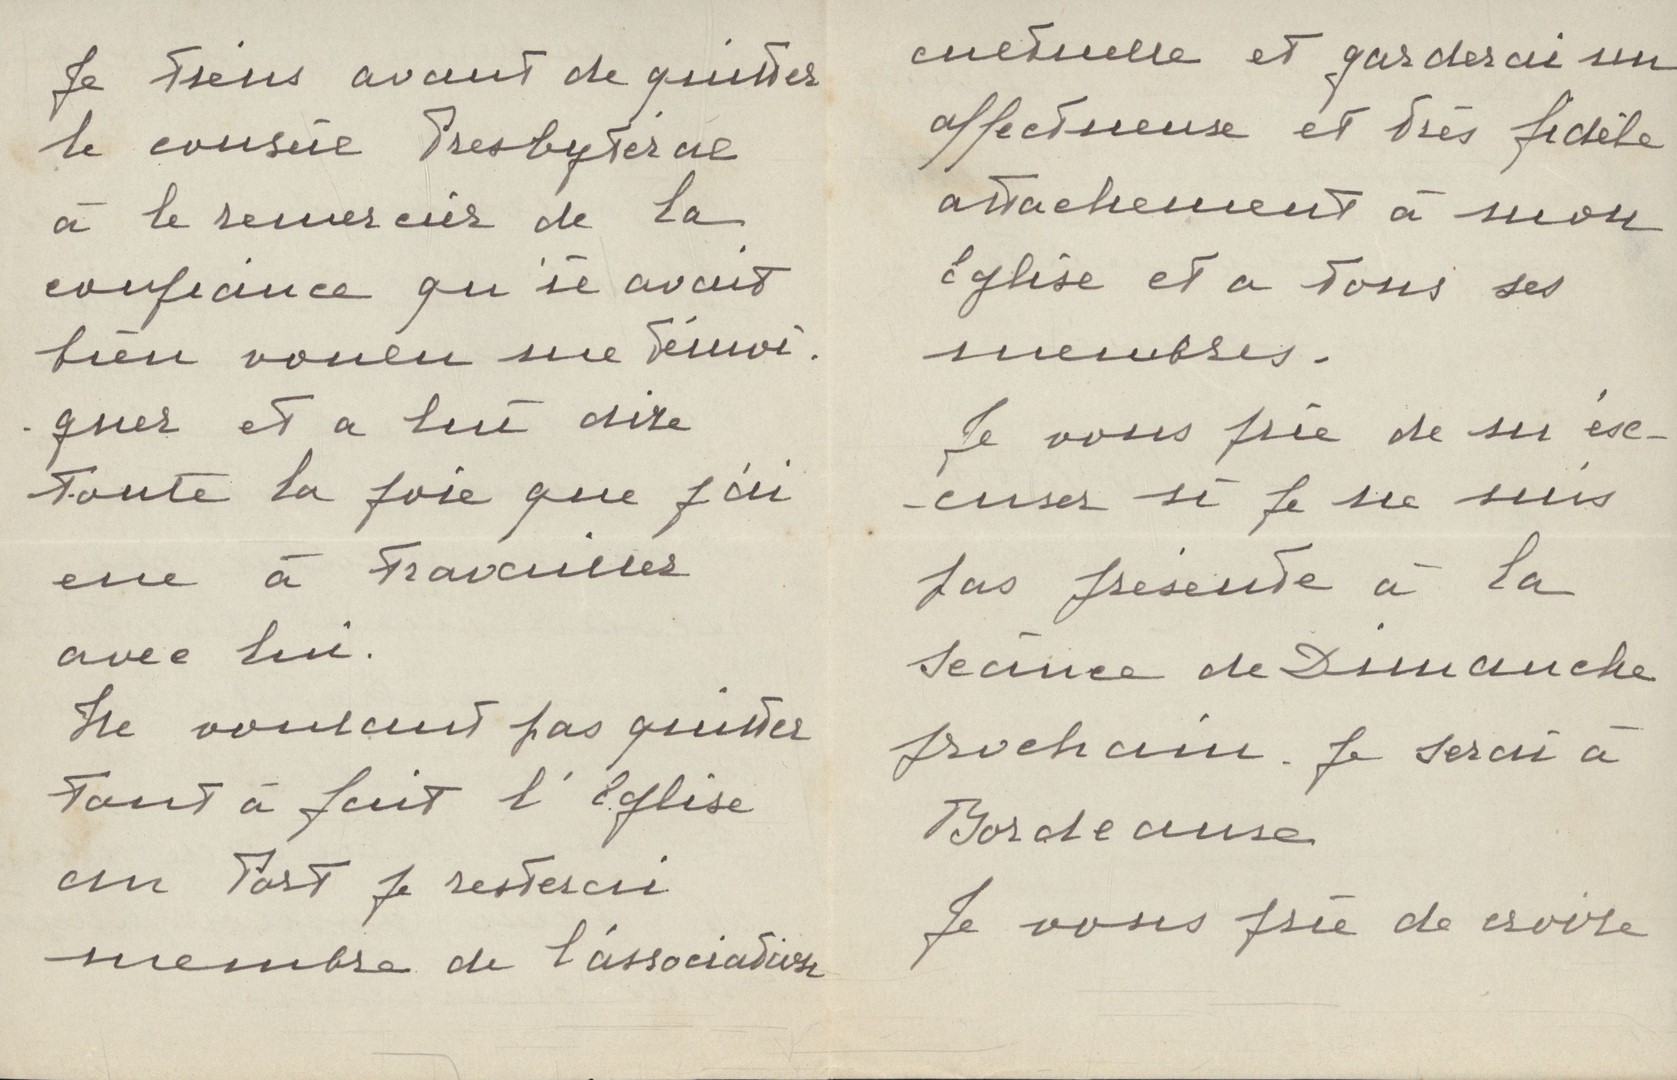 Je tiens avant de quitter
le conseil Presbytéral
à le remercier de la
confiance qu'il avait
bien voulu me témoi-
-gner et a lui dire
toute la joie que j'ai
eue à travailler
avec lui.
Ne voulant pas quitter
tout à fait l'Église
au Port je resterai
membre de l'association
cultuelle et garderai un
affectueuse et très fidèle
attachement à mon
Église et a tous ses
membres.
Je vous prie de m'ex-
-cuser si je ne suis
pas présente à la
séance de Dimanche
prochain. Je serai à
Bordeaux
Je vous prie de croire